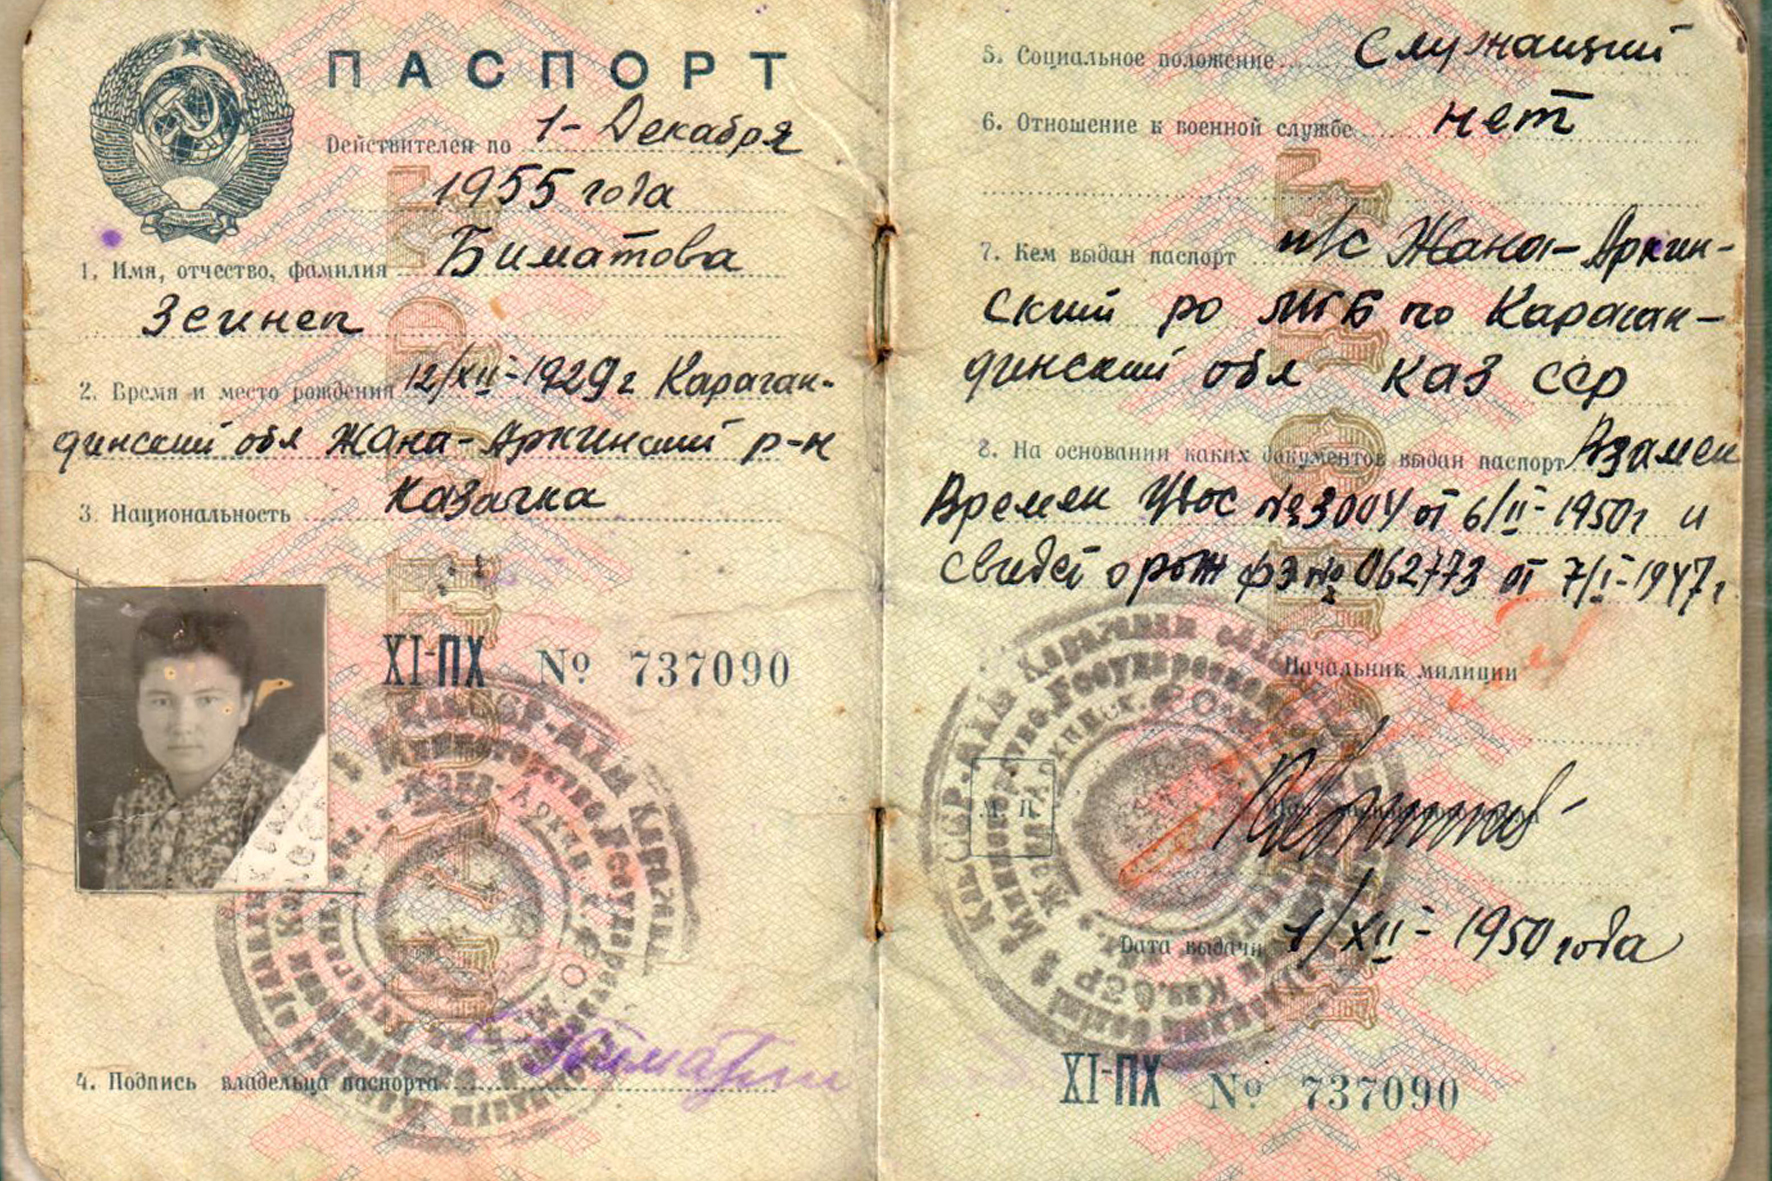 ПАСПОРТ
Действителен по 1- Декабря
1955 года
1. Имя, отчество, фамилия Биматова
Зейнеп
2. Время и место рождения 12/XII-1929 г Караган-
динский обл Жана-Аркинский р-н
3. Национальность казачка
XI-ПХ № 737090
4. Подпись владельца паспорта
5. Социальное положение Служащий
6. Отношение к военной службе нет
7. Кем выдан паспорт п/с Жана-Аркин-
ский ро МГБ по Караган-
динский обл Каз ССР
8. На основании каких документов выдан паспорт Взамен
Времен Удос №3004 от 6/II-1950 г и
свидет о рож ФЭ № 062773 от 7/I-1947 г.
Начальник милиции
М П
Дата выдачи 1/XII-1950 года
XI-ПХ № 737090